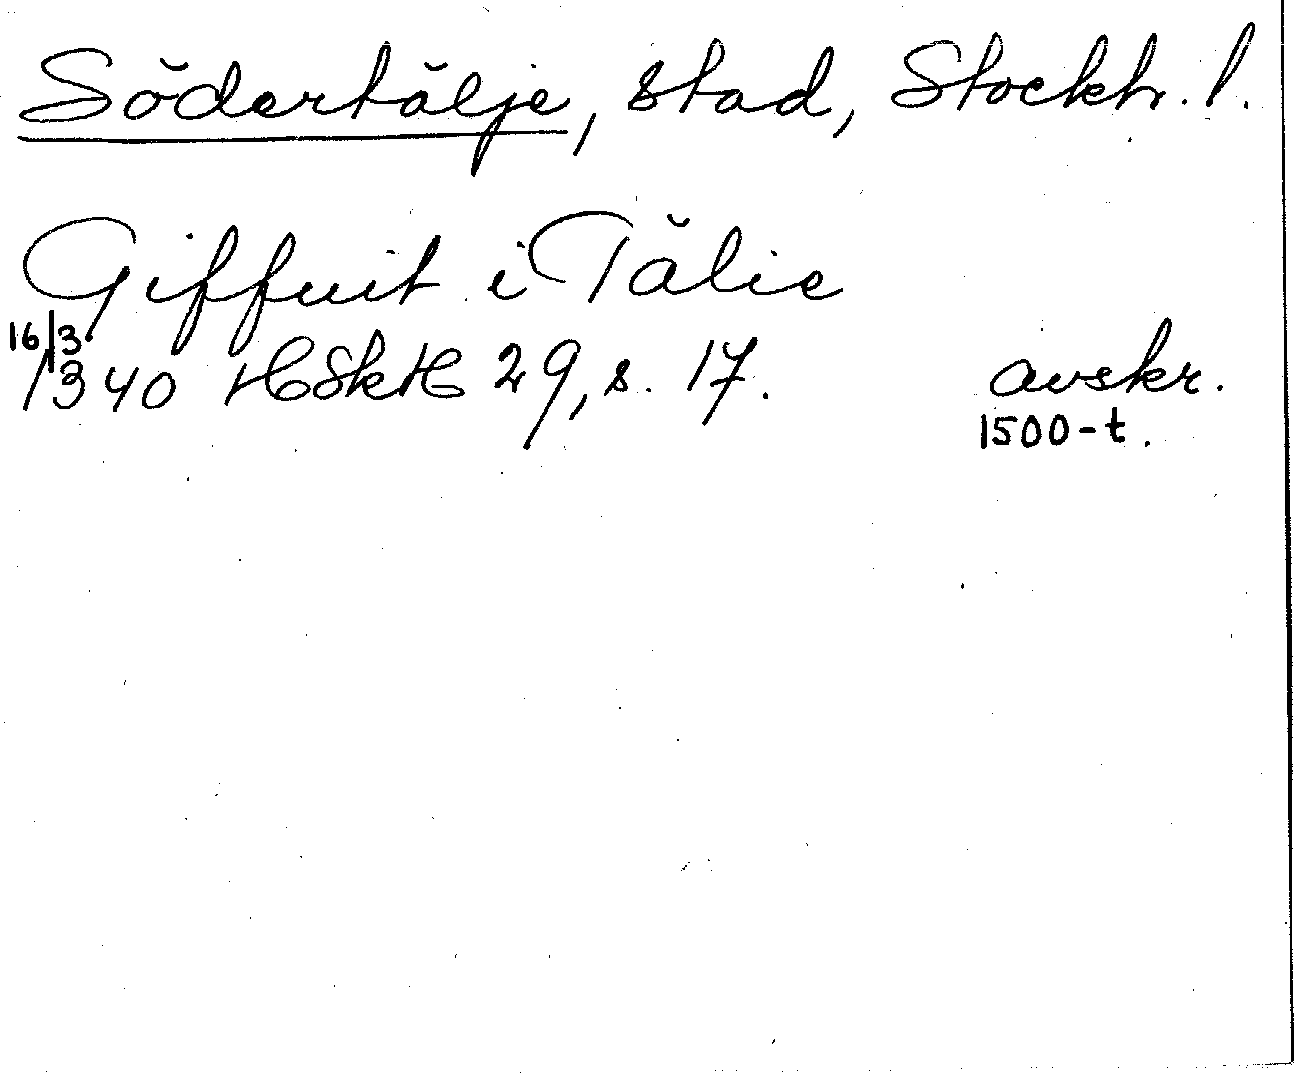 Södertälje, stad, Stockh. l.
Giffuit i Tälie
16/3
1340 HSkH 29, s. 17. avskr.
1500-t.